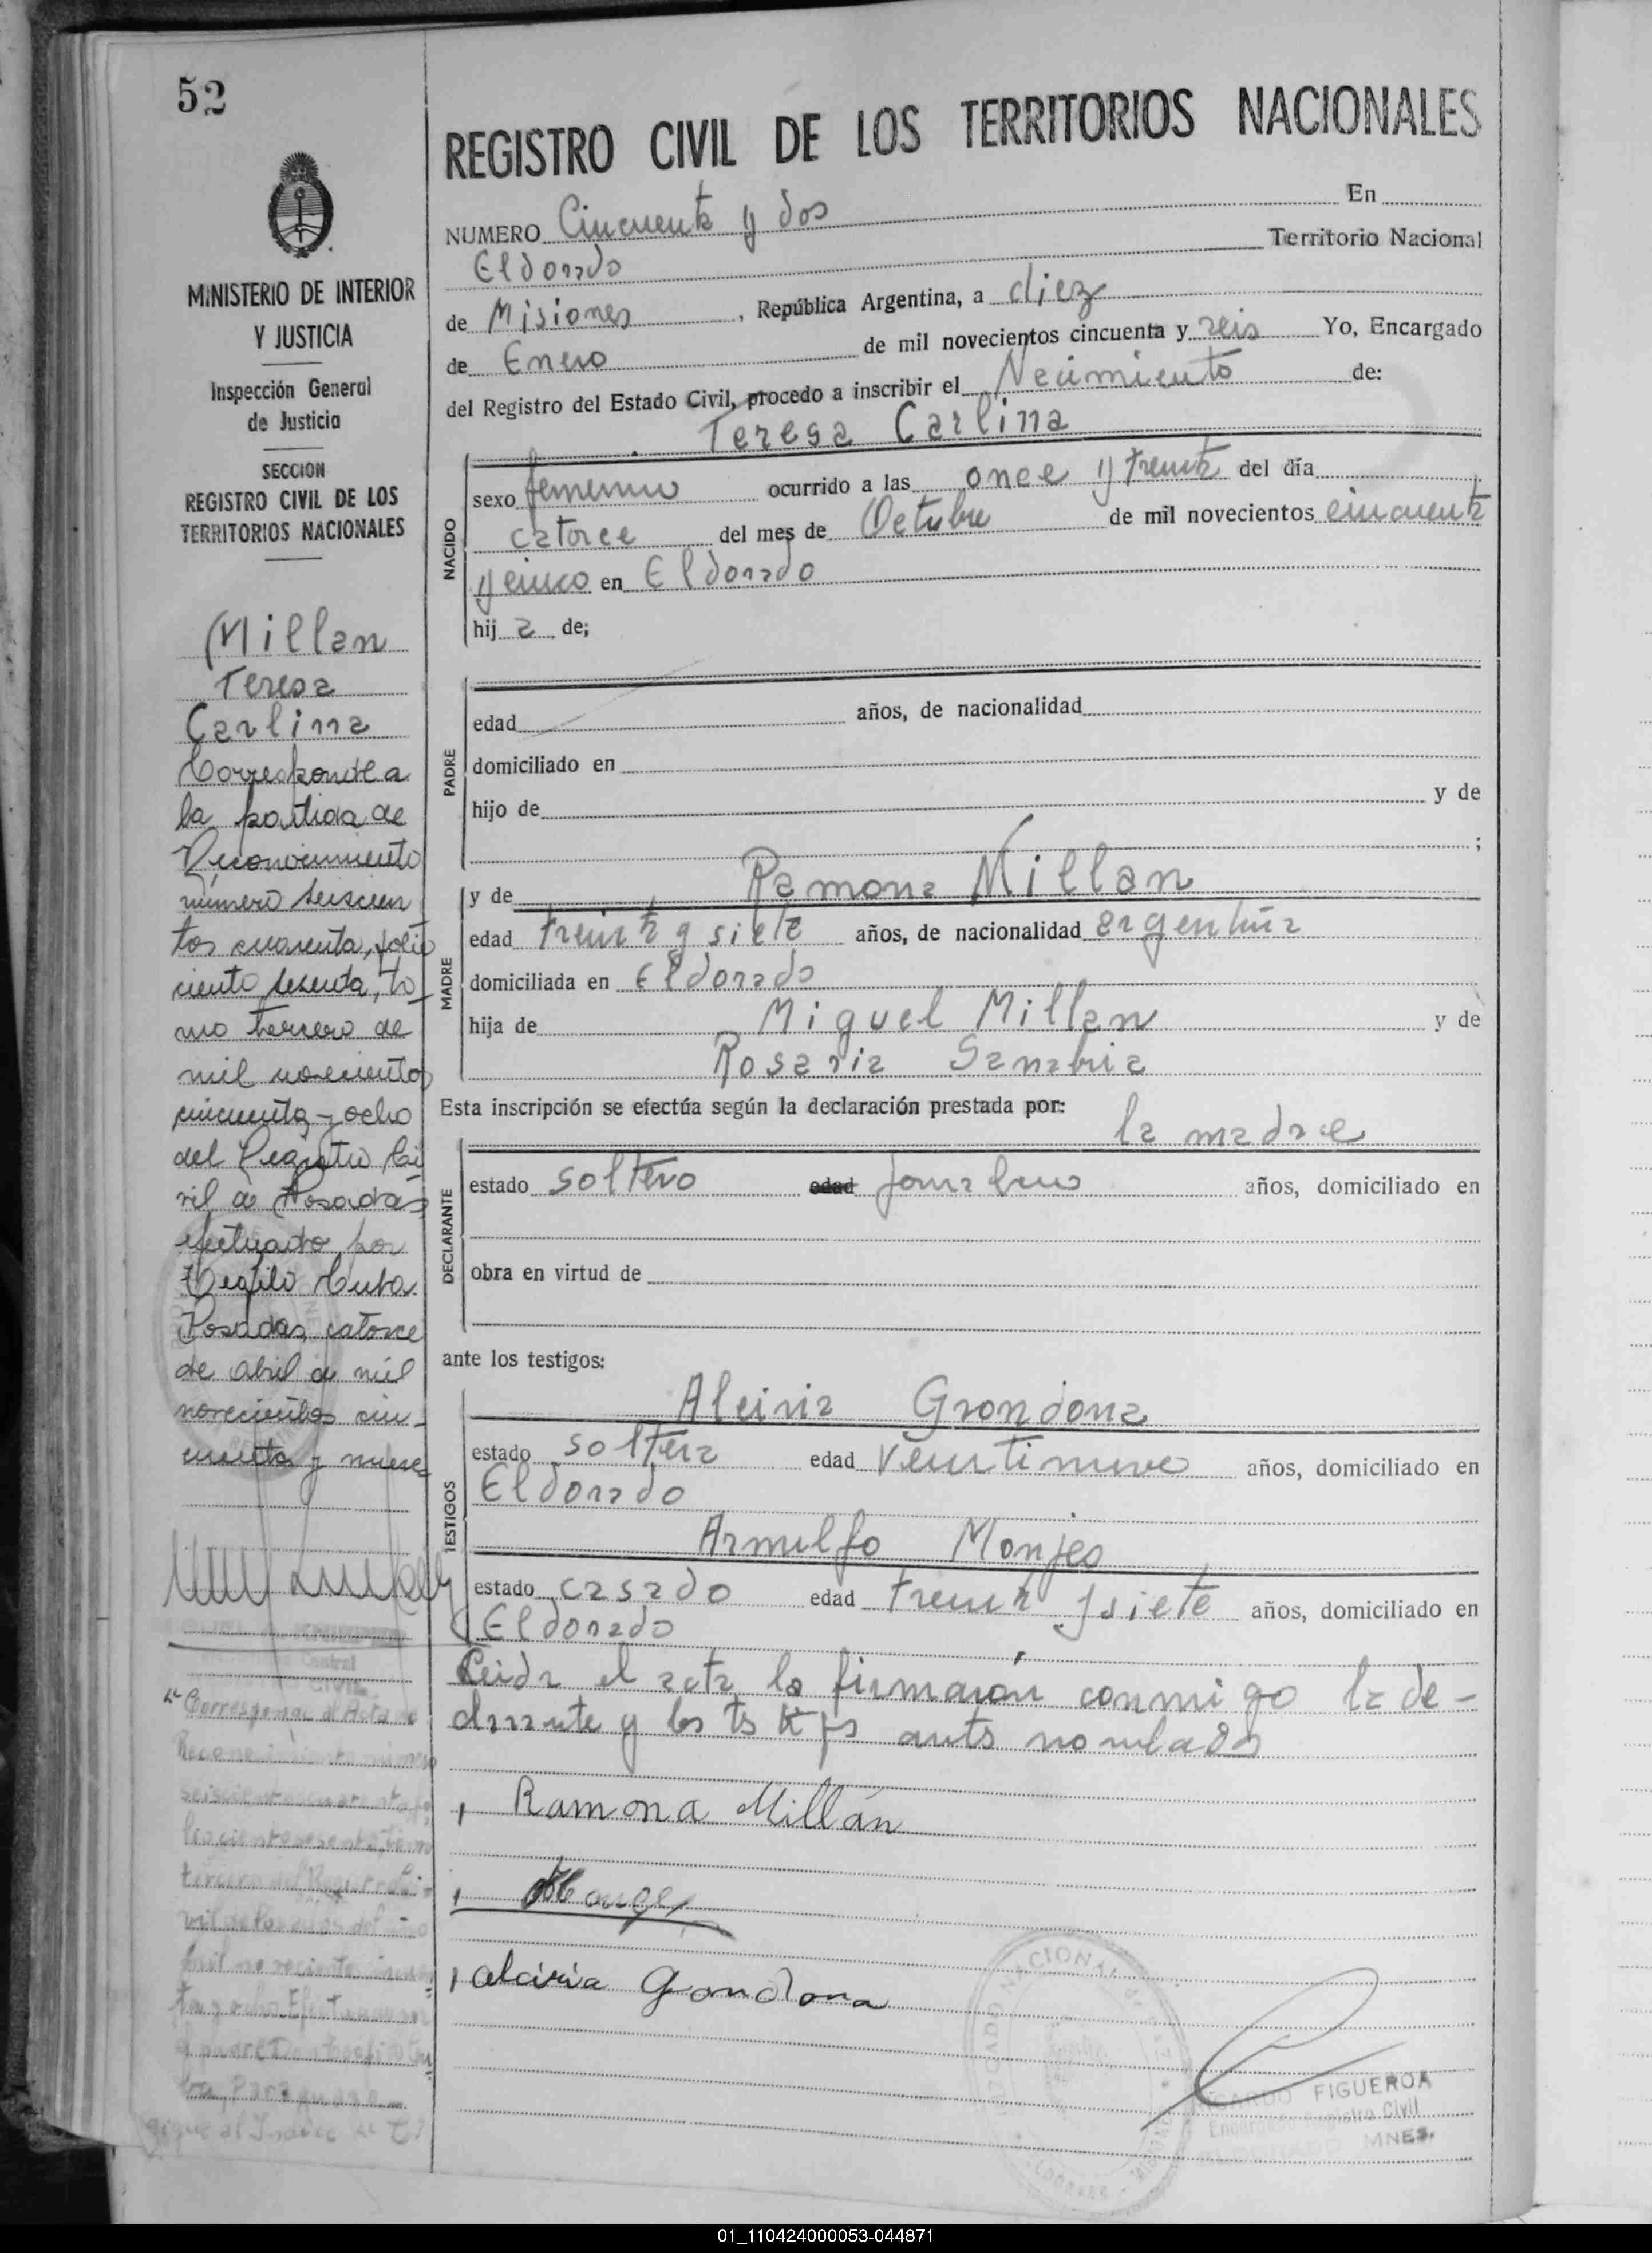 52
MINISTERIO DE INTERIOR
Y JUSTICIA
Inspección General
de Justicia
SECCION
REGISTRO CIVIL DE LOS
TERRITORIOS NACIONALES
Millan
Teresa
Carlina
Corresponde a
la partida de
Reconocimiento
número seiscien
tos cuarenta, folio
ciento sesenta, to
mo tercero de
mil novecientos
cincuenta y ocho
del Registro Ci
vil de Posadas
efectuado por
Cuba.
Posadas, catorce
de abril de mil
novecientos cin-
cuenta y nueve
Corresponde al Acta de
REGISTRO CIVIL DE LOS TERRITORIOS NACIONALES
NUMERO Cincuenta y dos En
Eldorado Territorio Nacional
de Misiones, República Argentina, a diez
de Enero de mil novecientos cincuenta y seis Yo, Encargado
del Registro del Estado Civil, procedo a inscribir el Nacimiento de:
Teresa Carlina
NACIDO
sexo femenino ocurrido a las once y treinta del día
catorce del mes de Octubre de mil novecientos cincuenta
y cinco en Eldorado
hij a de;
PADRE
edad años, de nacionalidad
domiciliado en
hijo de y de
;
MADRE
y de Ramona Millan
edad treinta y siete años, de nacionalidad argentina
domiciliada en Eldorado
hija de Miguel Millan y de
Rosaria Sanabria
Esta inscripción se efectúa según la declaración prestada por:
la madre
DECLARANTE
estado soltero edad años, domiciliado en
obra en virtud de
ante los testigos:
TESTIGOS
Alciria Grondona
estado soltera edad veintinueve años, domiciliado en
Eldorado
Arnulfo Monjes
estado casado edad treinta y siete años, domiciliado en
Eldorado
Leida el acta la firmaron conmigo la de-
clarante y los testigos antes nomblados
Ramona Millán
Alciria Gondona
RICARDO FIGUEROA
Encargado Registro Civil
ELDORADO MNES.
01_110424000053-044871